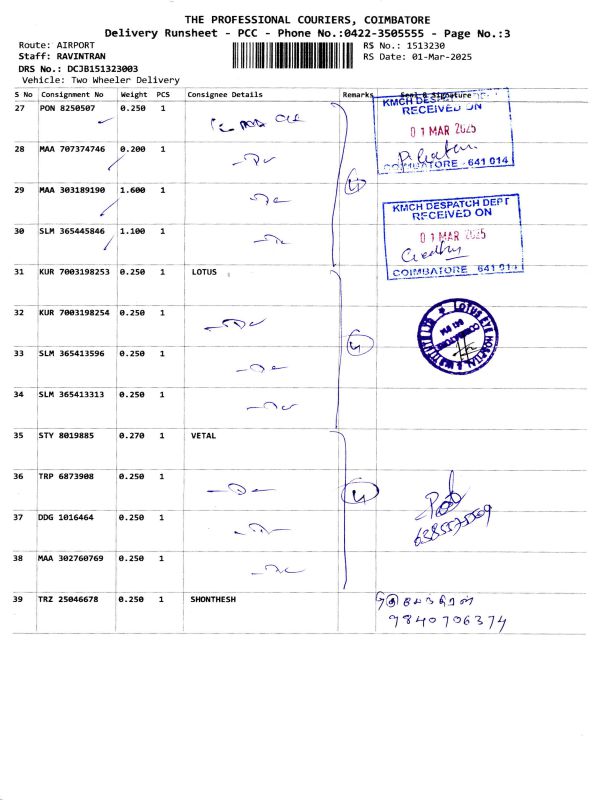 THE PROFESSIONAL COURIERS, COIMBATORE
Delivery Runsheet - PCC - Phone No.:0422-3505555 - Page No.:3
Route: AIRPORT RS No.: 1513230
Staff: RAVINTRAN RS Date: 01-Mar-2025
DRS No.: DCJB151323003
Vehicle: Two Wheeler Delivery
S No Consignment No Weight PCS Consignee Details Remarks Seal & Signature
27 PON 8250507 0.250 1
KMCH DESPATCH DEPT
RECEIVED ON
01 MAR 2025
COIMBATORE - 641 014
28 MAA 707374746 0.200 1
29 MAA 303189190 1.600 1
4
KMCH DESPATCH DEPT
RECEIVED ON
01 MAR 2025
COIMBATORE 641 014
30 SLM 365445846 1.100 1
31 KUR 7003198253 0.250 1 LOTUS
32 KUR 7003198254 0.250 1
4
LOTUS EYE HOSPITAL & INSTITUTE LTD
COIMBATORE
641 014
33 SLM 365413596 0.250 1
34 SLM 365413313 0.250 1
35 STY 8019885 0.270 1 VETAL
36 TRP 6873908 0.250 1
4
37 DDG 1016464 0.250 1
38 MAA 302760769 0.250 1
39 TRZ 25046678 0.250 1 SHONTHESH
9840706374